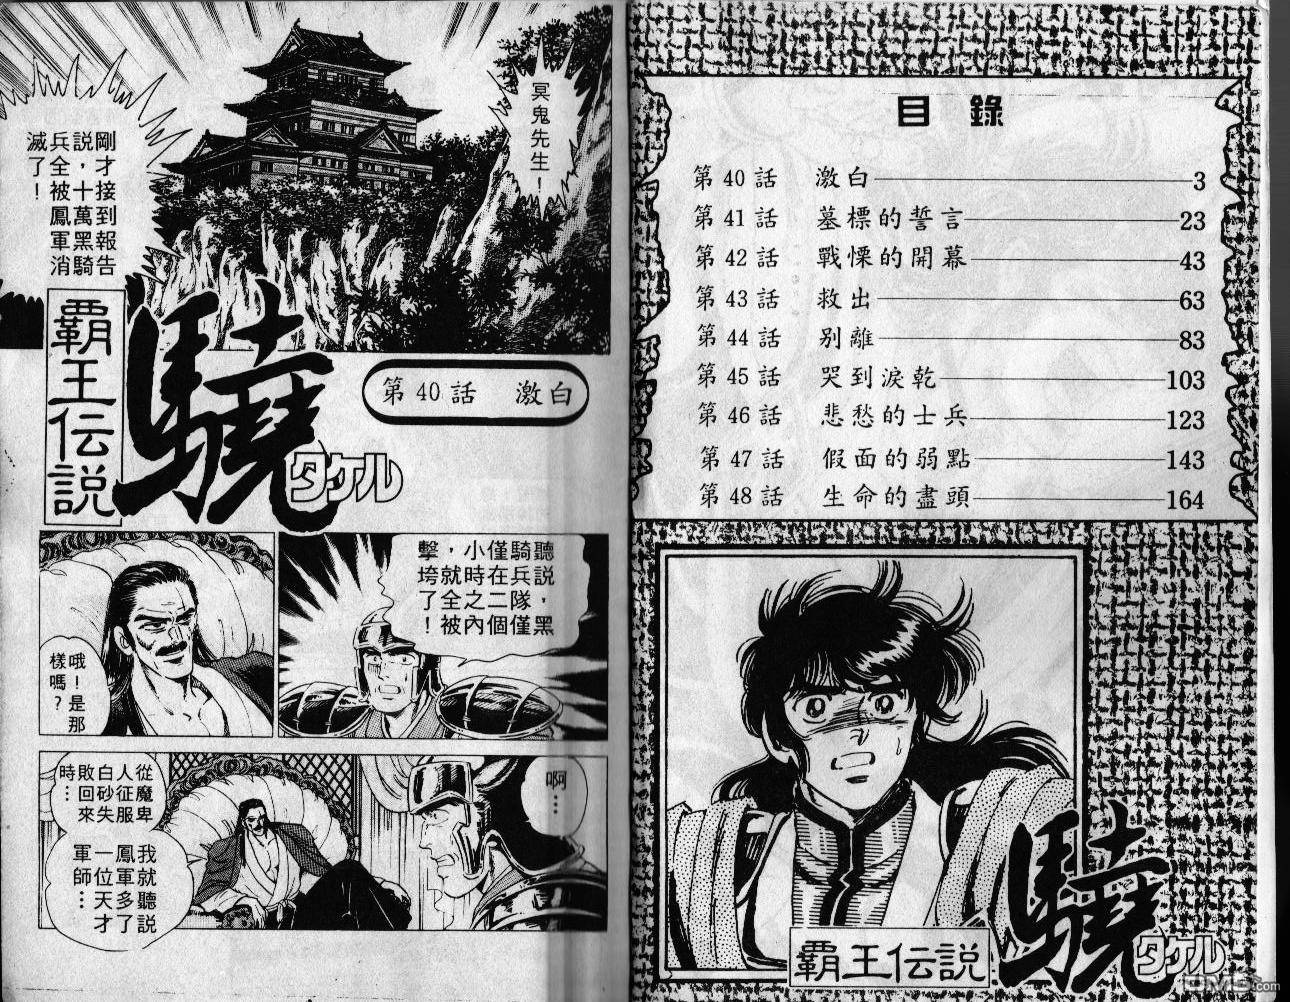 目錄
第40話 激白 3
第41話 墓標的誓言 23
第42話 戰慄的開幕 43
第43話 救出 63
第44話 別離 83
第45話 哭到淚乾 103
第46話 悲愁的士兵 123
第47話 假面的弱點 143
第48話 生命的盡頭 164
覇王伝説
驍
タケル
冥鬼先生！
剛才接到報告
説，十萬黑騎
兵全被鳳軍消
滅了！
覇王伝説
驍
タケル
第40話 激白
聽説，僅黑
騎兵隊，
僅在二個
小時之內
，就全被
擊垮了！
哦！是那
樣嗎？
啊…
從魔卑
人征服
白砂失
敗回來
時…
我就聽説
鳳軍多了
一位天才
軍師…